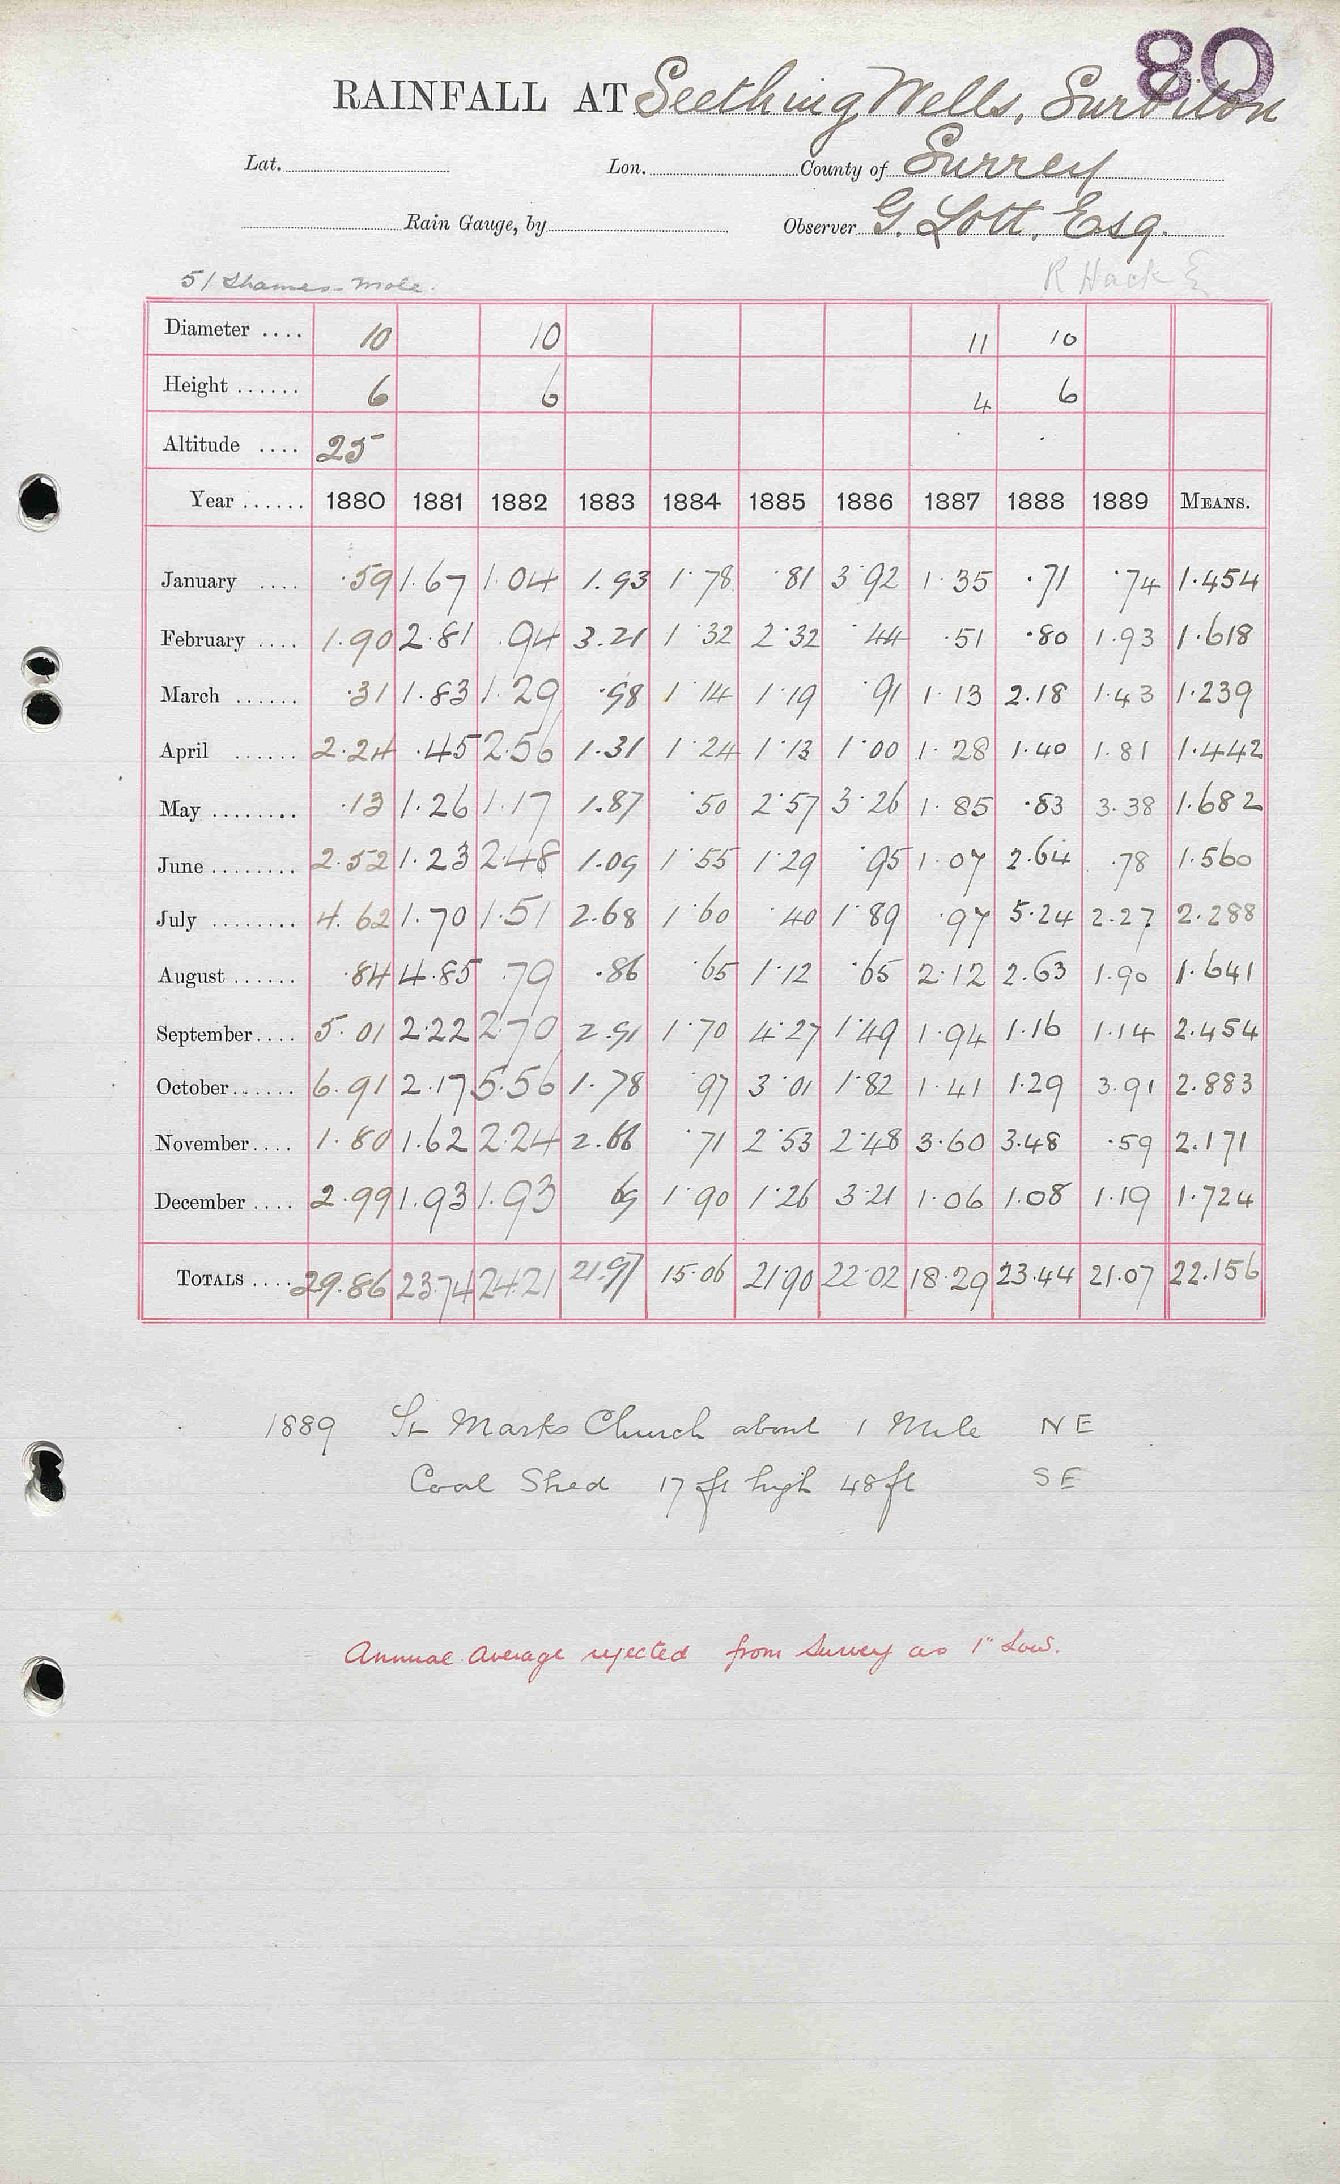 80
RAINFALL AT Seething Wells, Surbiton
Lat. Lon. County of Surrey
Rain Gauge, by Observer G. Lott, Esq.
51 Thames-Mole. R Hack E
Diameter .... 10 10 11 10
Height ...... 6 6 4 6
Altitude .... 25
Year ...... 1880 1881 1882 1883 1884 1885 1886 1887 1888 1889 MEANS.
January .... .59 1.67 1.04 1.93 1.78 .81 3.92 1.35 .71 .74 1.454
February .... 1.90 2.81 .94 3.21 1.32 2.32 .44 .51 .80 1.93 1.618
March ...... .31 1.83 1.29 .98 1.14 1.19 .91 1.13 2.18 1.43 1.239
April ...... 2.24 .45 2.56 1.31 1.24 1.13 1.00 1.28 1.40 1.81 1.442
May ........ .13 1.26 1.17 1.87 .50 2.57 3.26 1.85 .83 3.38 1.682
June ........ 2.52 1.23 2.48 1.09 1.55 1.29 .95 1.07 2.64 .78 1.560
July ........ 4.62 1.70 1.51 2.68 1.60 .40 1.89 .97 5.24 2.27 2.288
August ...... .84 4.85 .79 .86 .65 1.12 .65 2.12 2.63 1.90 1.641
September.... 5.01 2.22 2.70 2.91 1.70 4.27 1.49 1.94 1.16 1.14 2.454
October...... 6.91 2.17 5.56 1.78 .97 3.01 1.82 1.41 1.29 3.91 2.883
November.... 1.80 1.62 2.24 2.66 .71 2.53 2.48 3.60 3.48 .59 2.171
December .... 2.99 1.93 1.93 69 1.90 1.26 3.21 1.06 1.08 1.19 1.724
TOTALS .... 29.86 23.74 24.21 21.97 15.06 21.90 22.02 18.29 23.44 21.07 22.156
1889 St Marks Church about 1 Mile NE
Coal Shed 17 ft high 48 ft SE
Annual Average rejected from Survey as 1" Low.